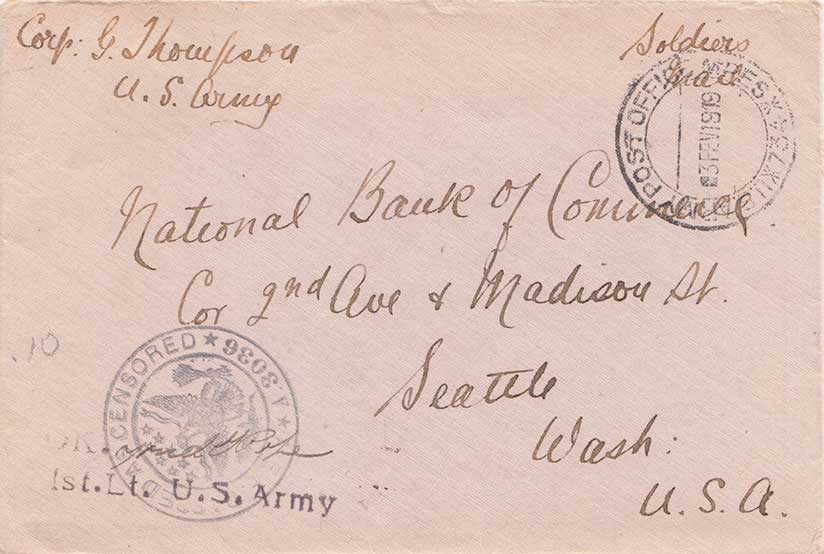 Corp. G. Thompson
U. S. Army
Soldiers
Mail
POST OFFICE
FEV1919
National Bank of Commerce
Cor 2nd Ave & Madison St.
Seattle
Wash.
U. S. A.
.10
CENSORED ★ A 3036
OK.
1st. Lt. U. S. Army